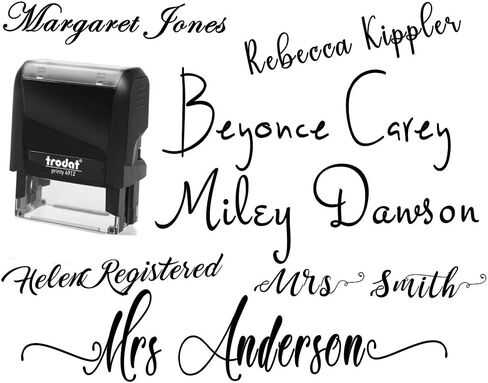 Margaret Jones
Rebecca Kippler
Beyonce Carey
trodat
printy 4912
Miley Dawson
Helen Registered
Mrs Smith
Mrs Anderson